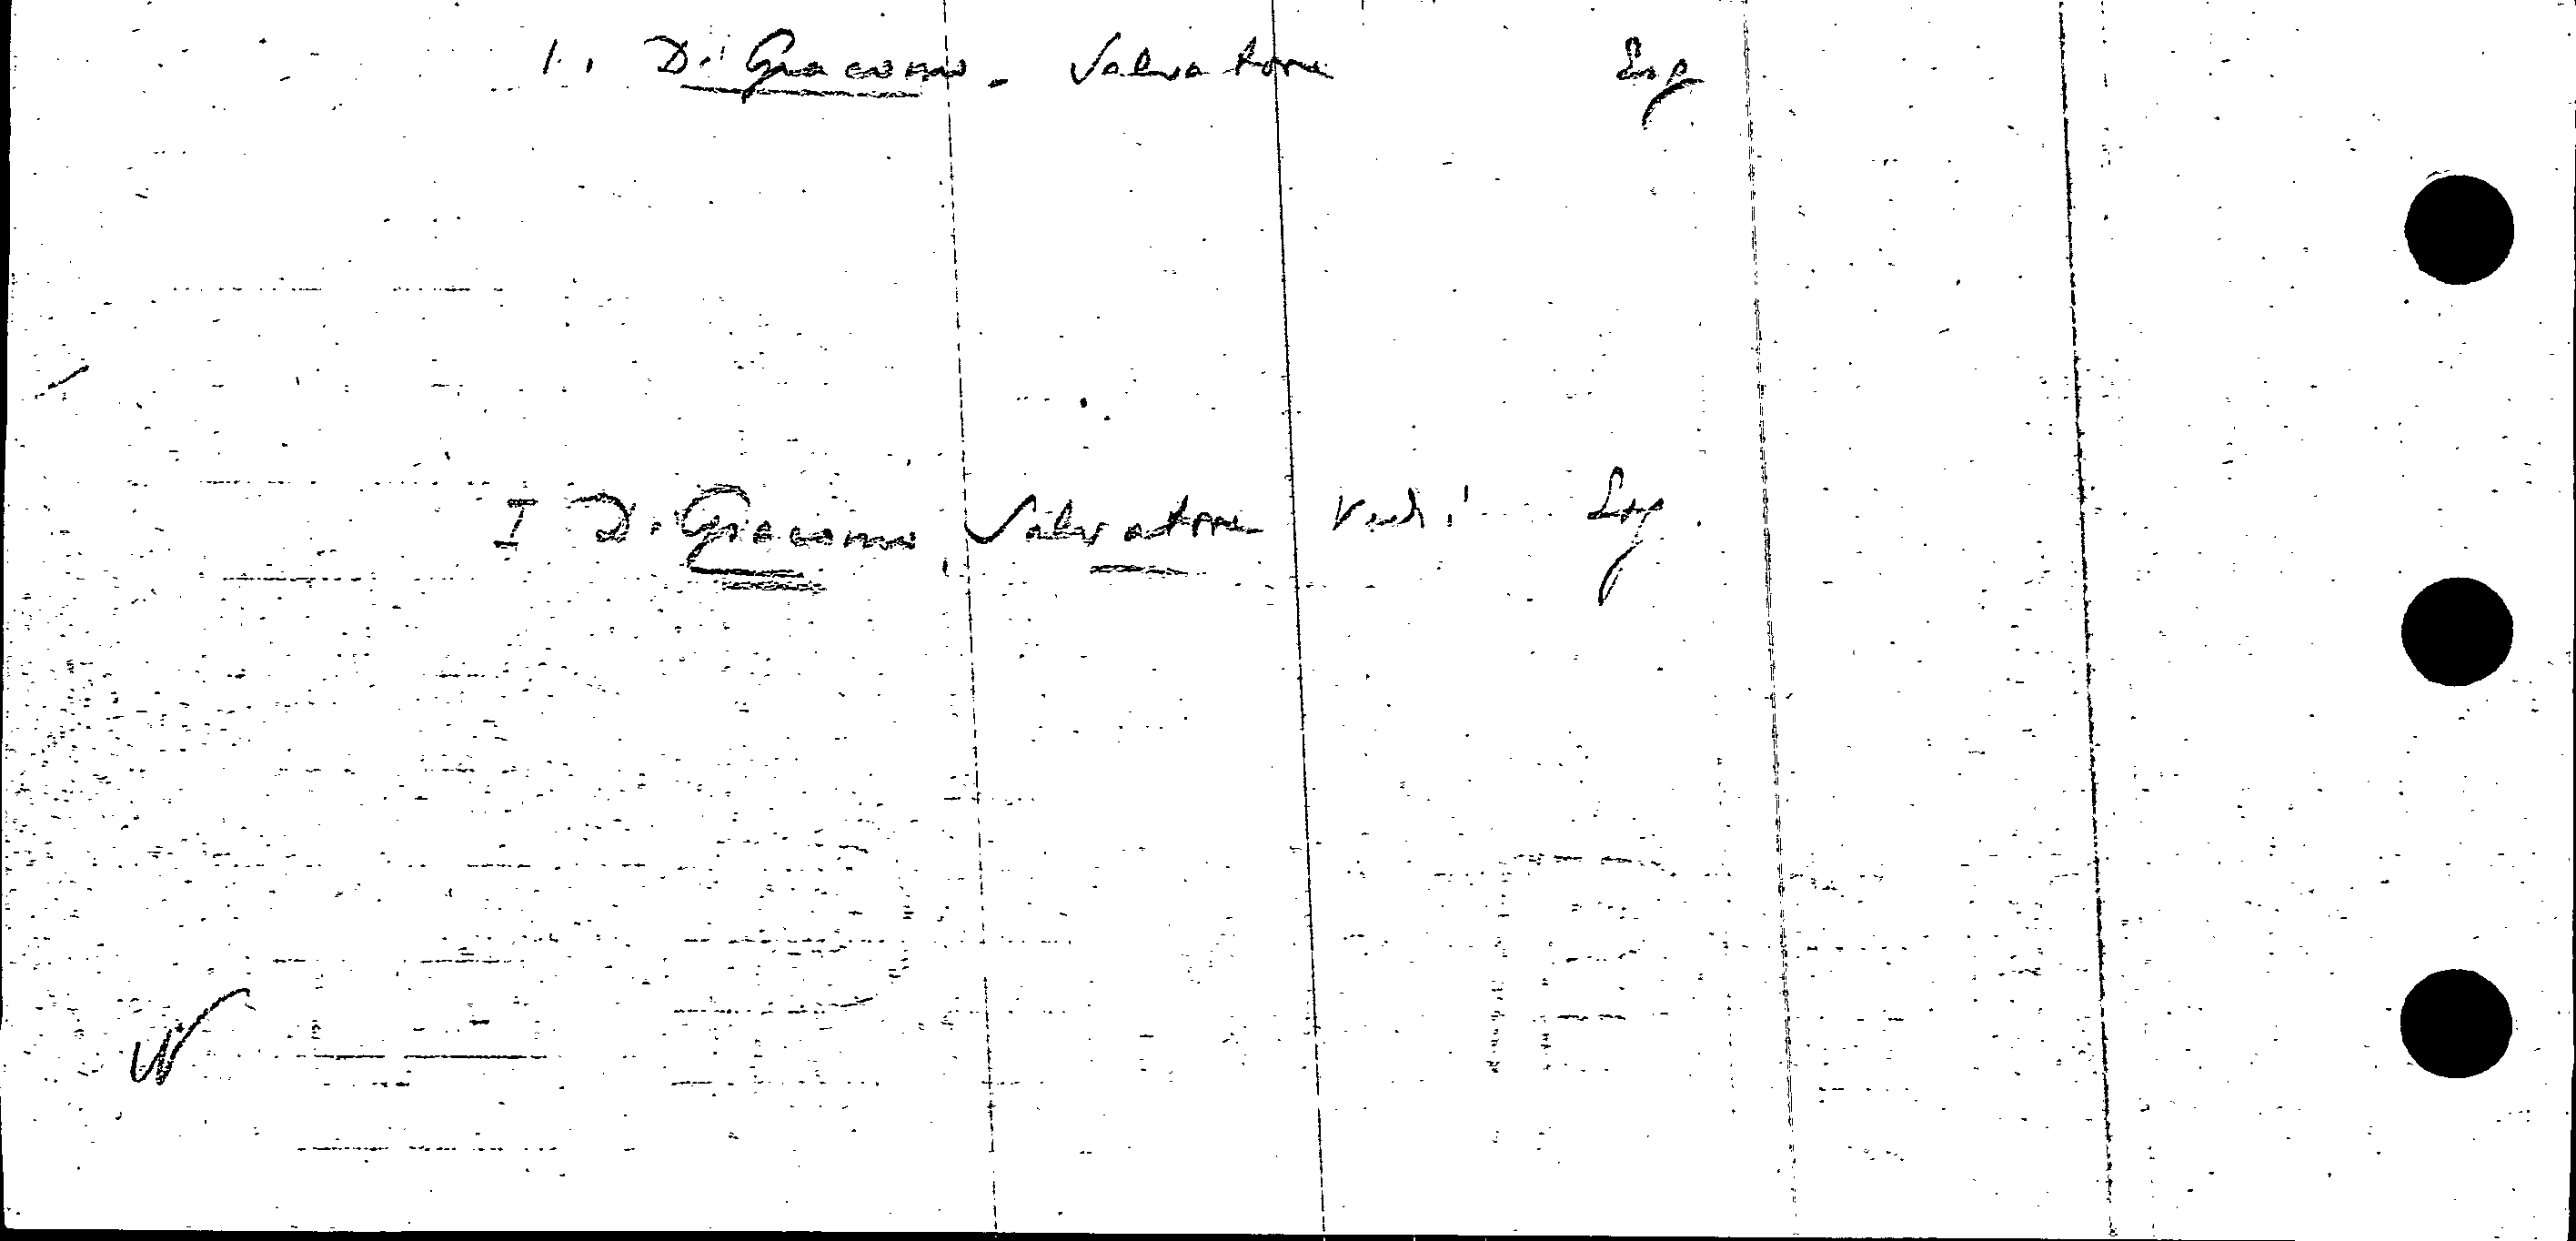 1. Di Giacomo - Salvatore
I Di Giacomo, Salvatore Vedi